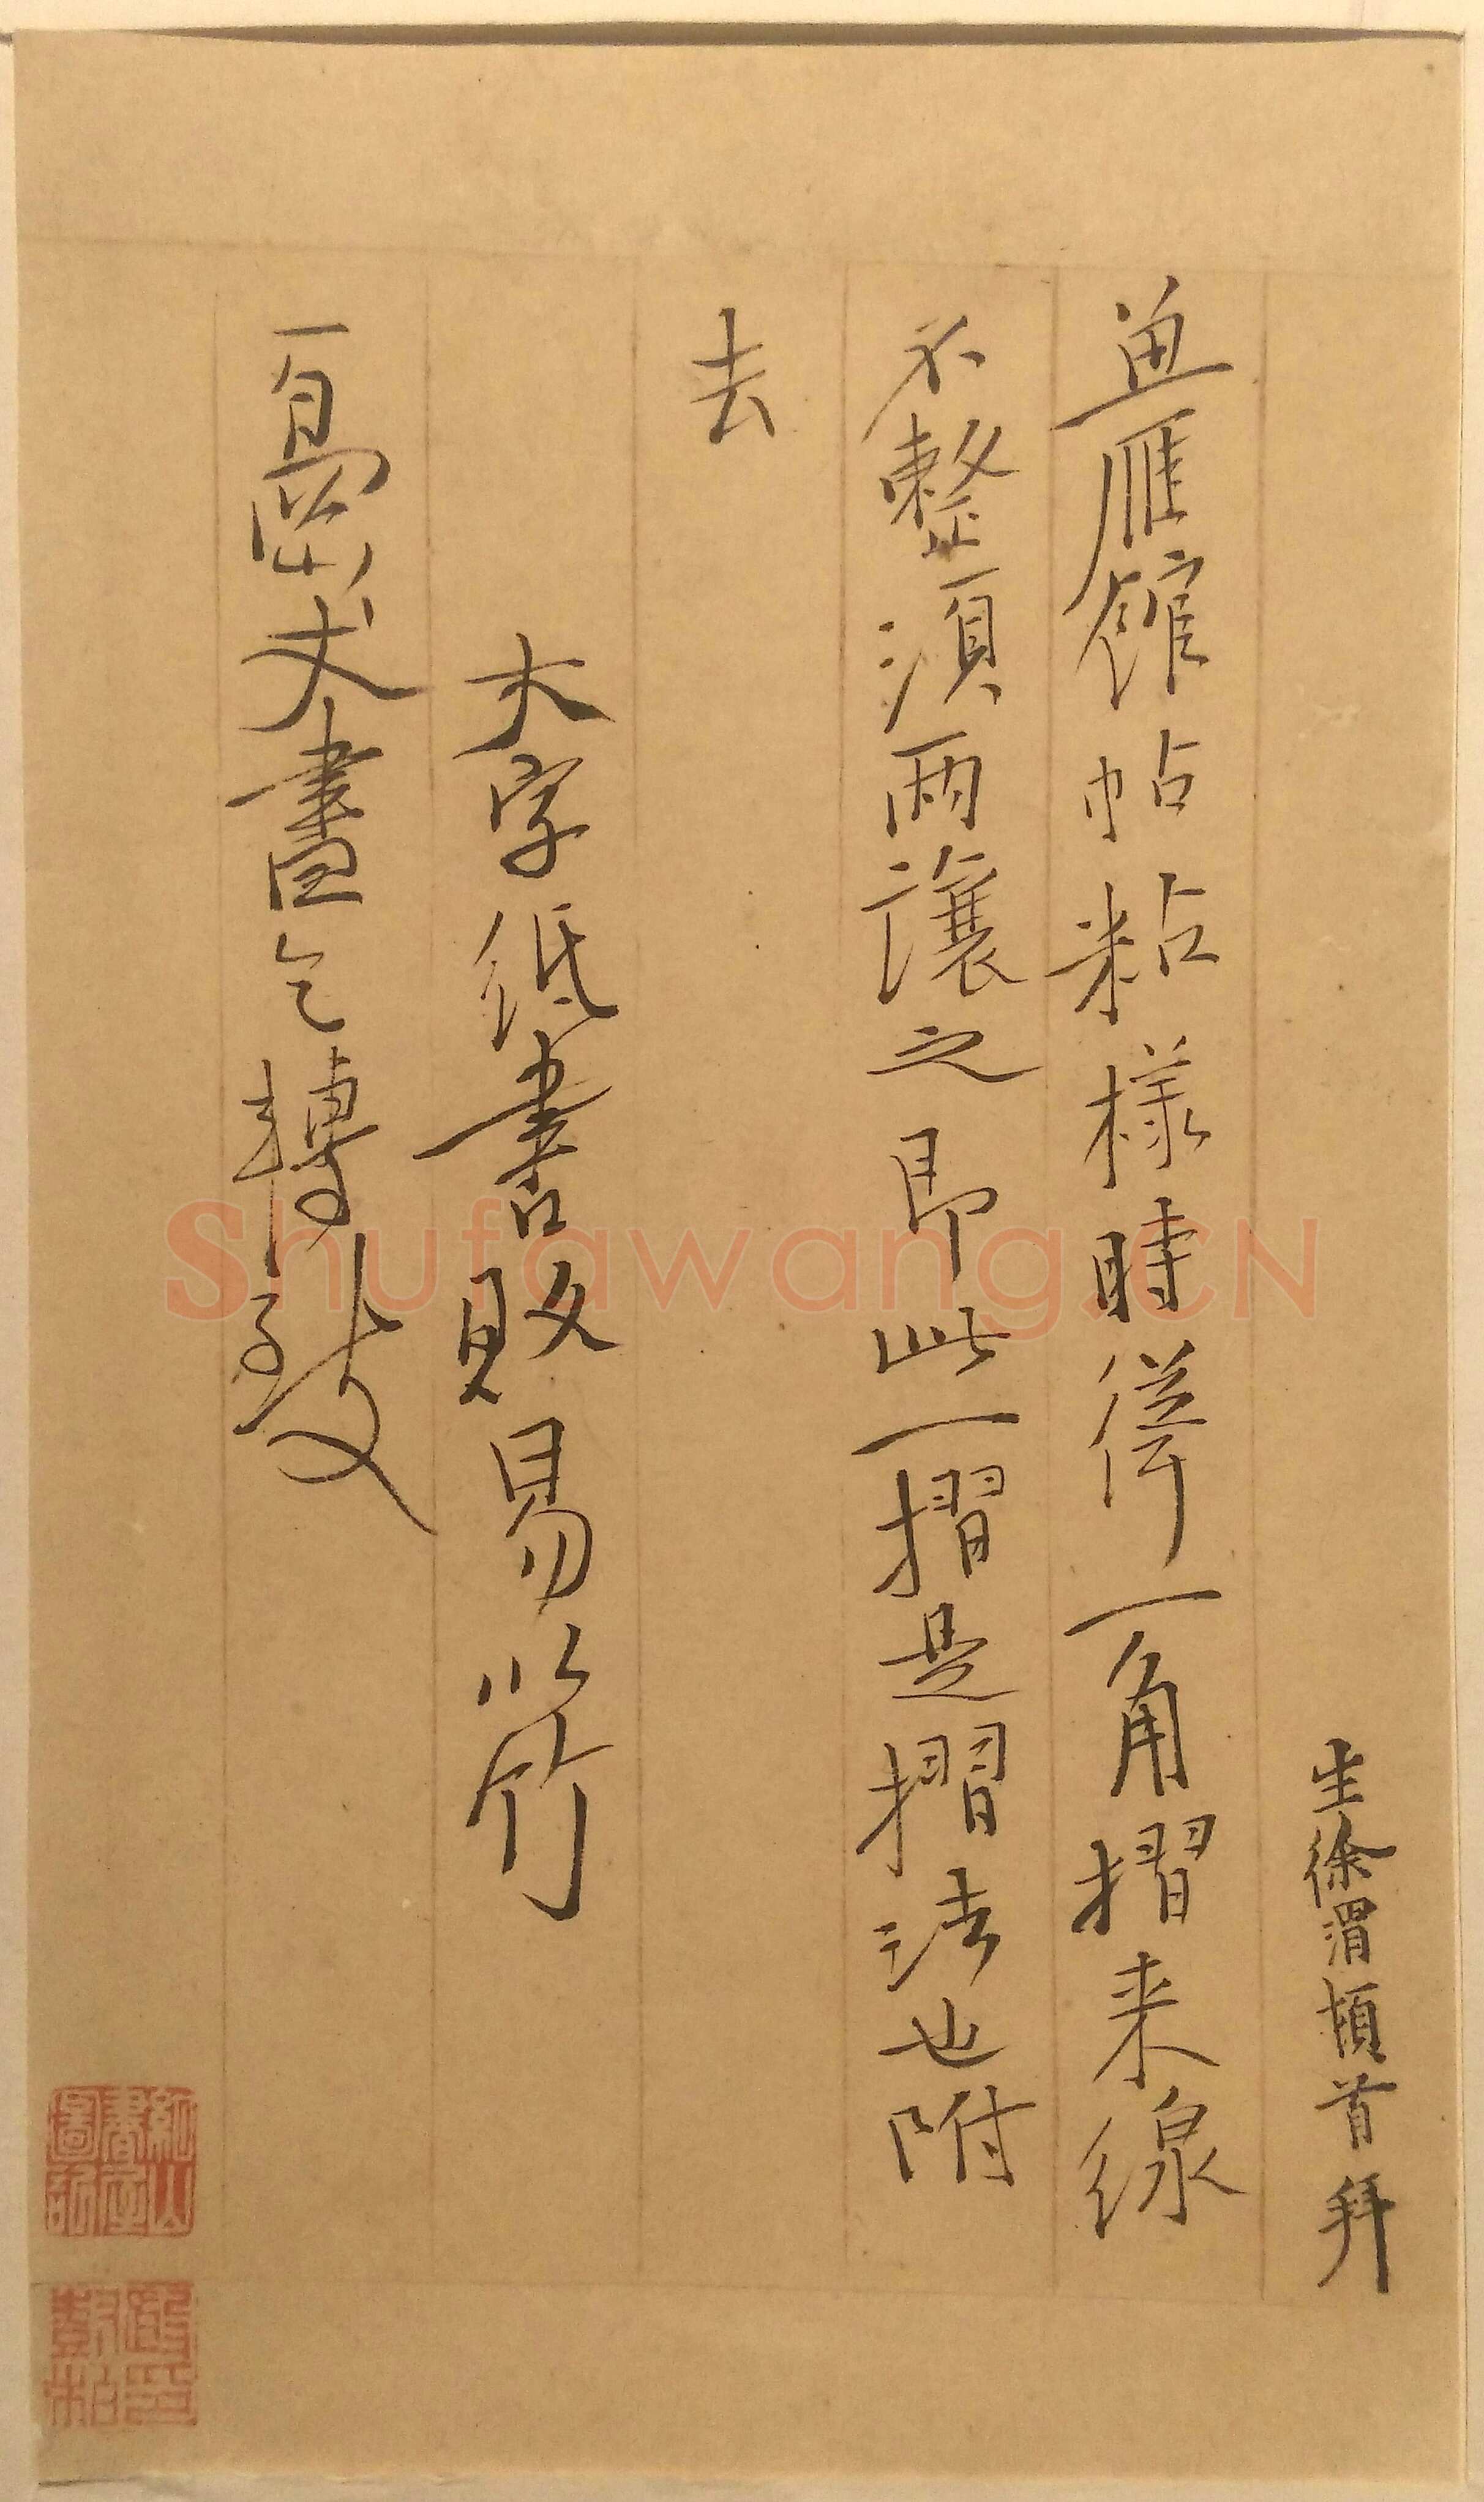 生徐渭頓首拜
魚雁館帖粘樣時從一角摺来線
不整須兩讓之即此一摺是摺法也附
去
大字紙書敗易以竹
一扇岳丈畫乞轉致
Shufawang.CN